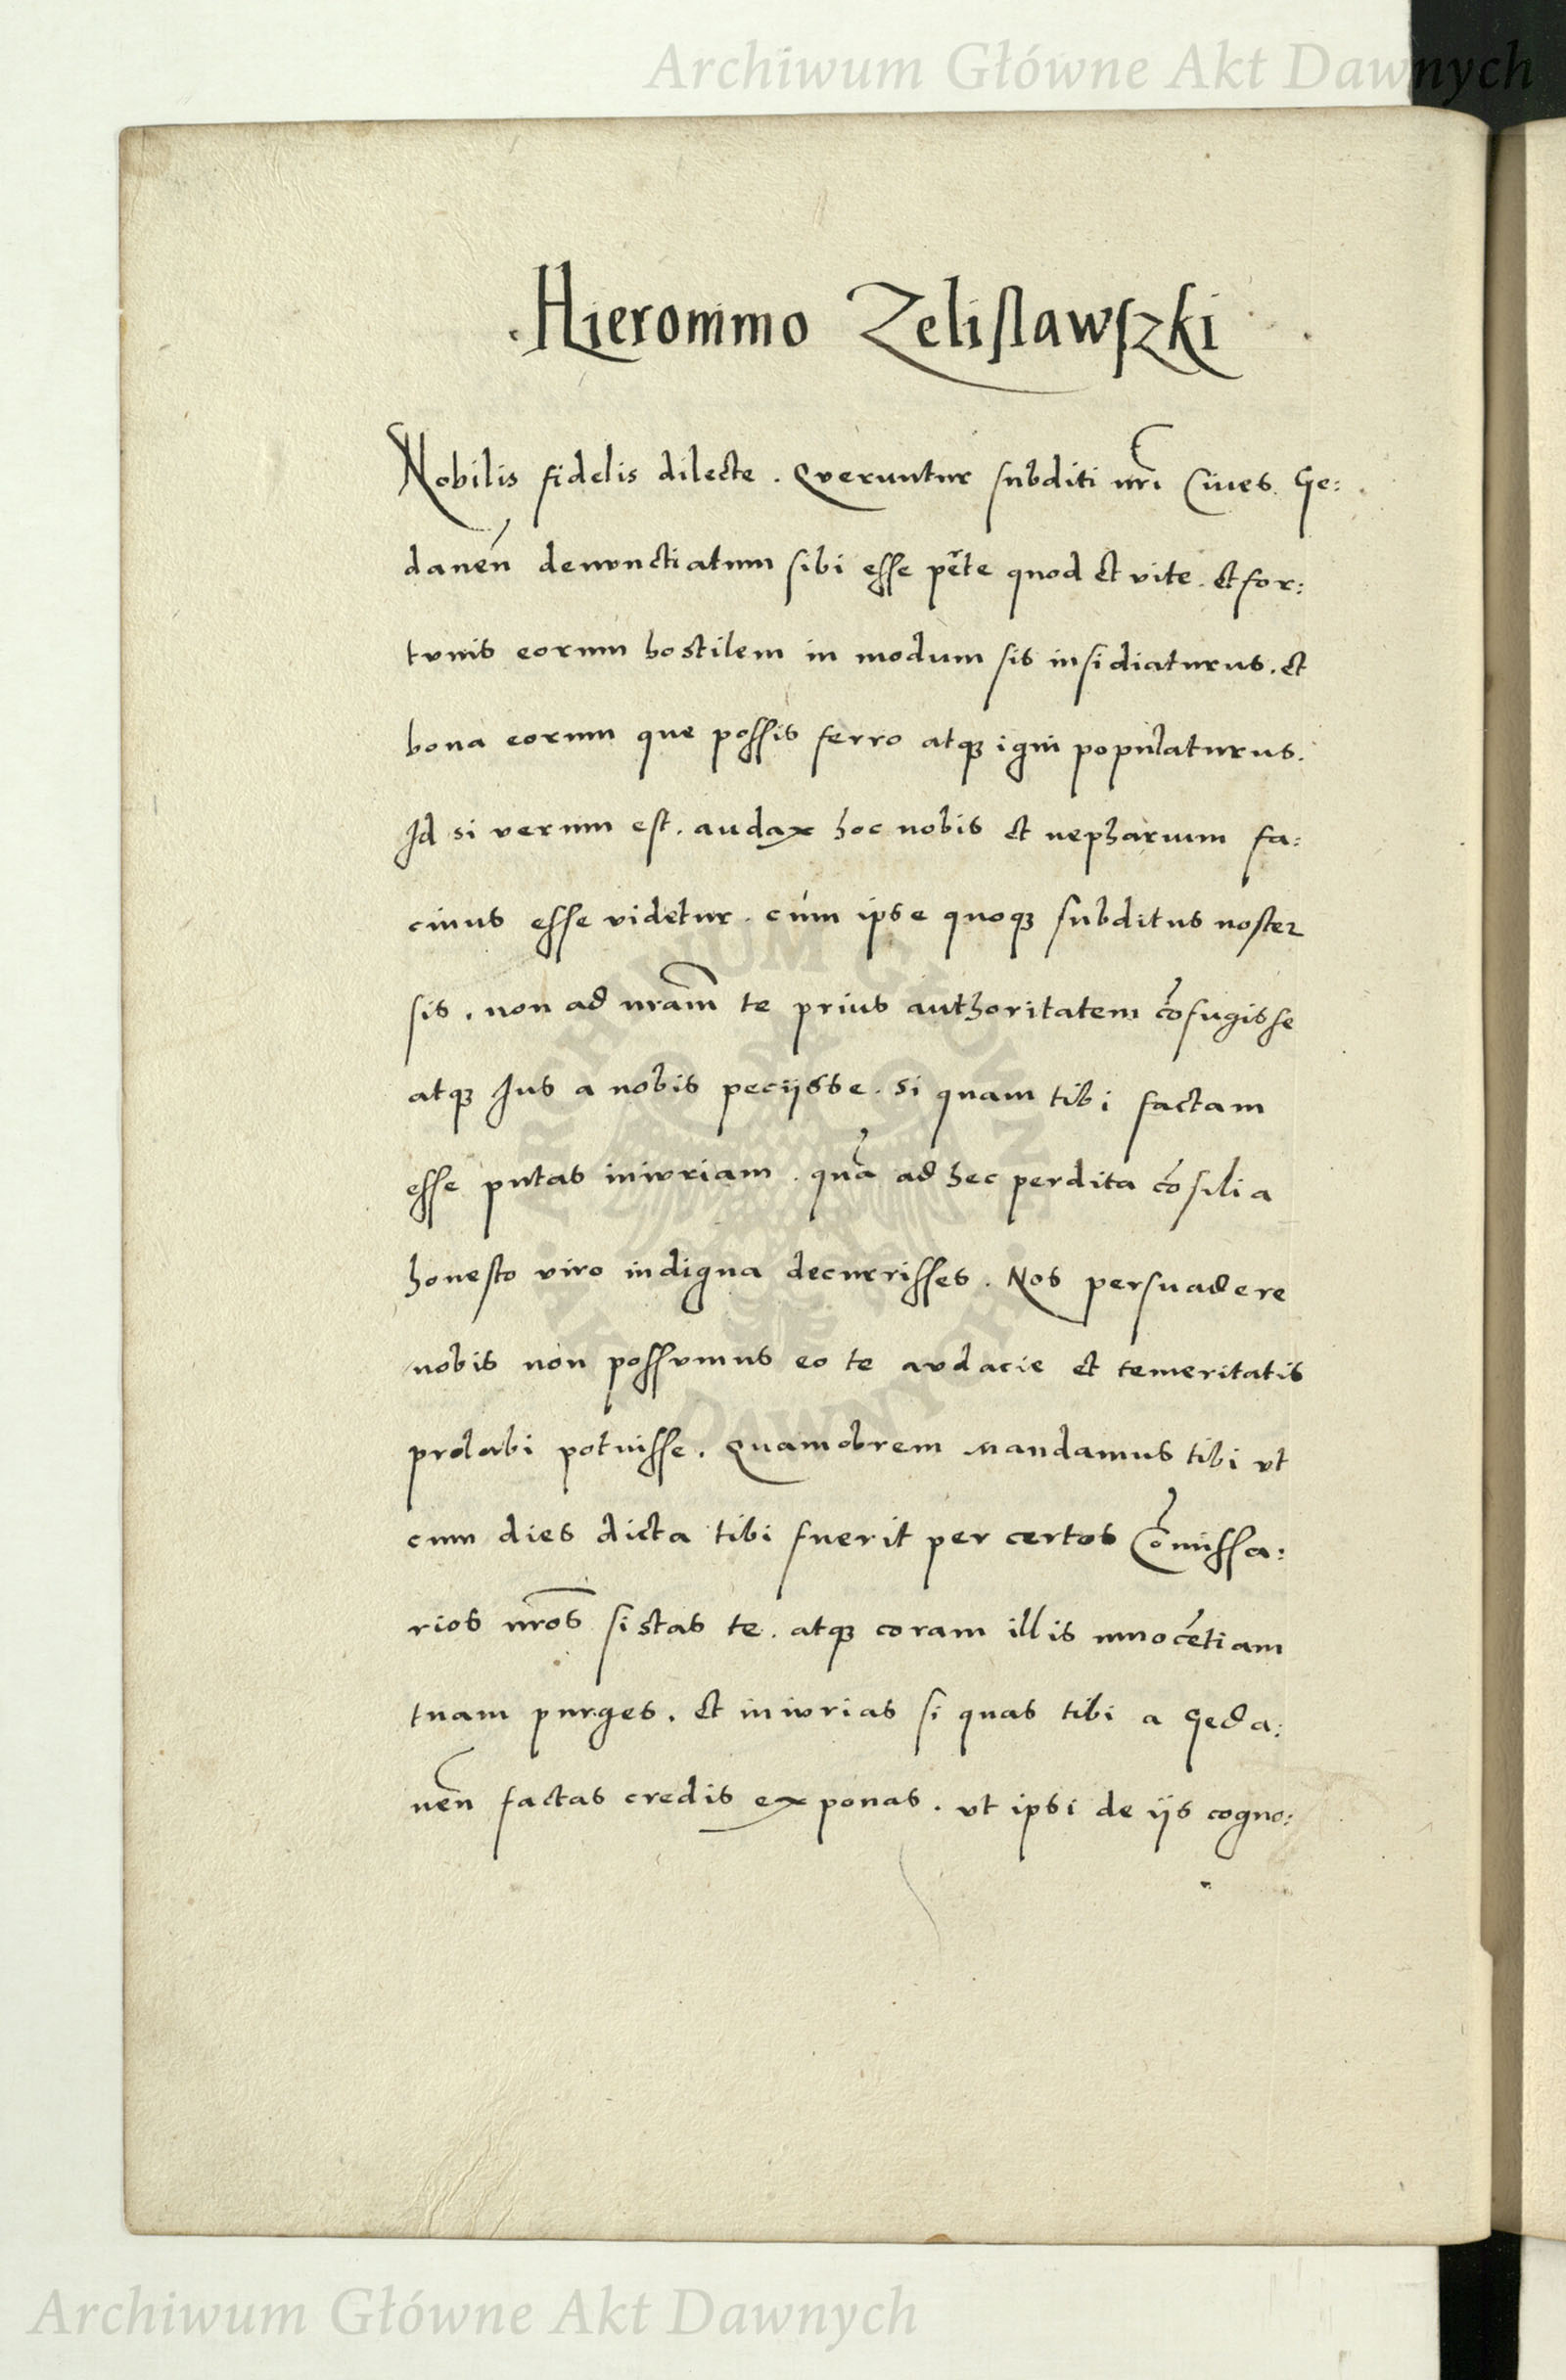 Archiwum Główne Akt Dawnych
. Hieronimo Zelislawszki .
Nobilis fidelis dilecte . Queruntur subditi nr̃i Ciues Ge:
daneñ denunctiatum sibi esse per̃te quod et vite . et for:
tunis eorum hostilem in modum sis insidiaturus . et
bona eorum que possis ferro atqꝫ igni populaturus .
Id si verum est . audax hoc nobis et nepharium fa:
cinus esse videtur . cúm ipse quoqꝫ subditus noster
sis . non ad nram̃ te prius authoritatem cõfugisse
atqꝫ Ius a nobis pecijsse . si quam tibi factam
esse putas iniuriam . quã ad hec perdita cõsilia
honesto viro indigna decurrisses . Nos persuadere
nobis non possumus eo te audacie et temeritatis
prolabi potuisse . Quamobrem mandamus tibi vt
cum dies dicta tibi fuerit per certos Cõmissa:
rios nros̃ sistas te . atqꝫ coram illis innocẽtiam
tuam purges . et iniurias si quas tibi a Geda:
neñ factas credis exponas . vt ipsi de ijs cogno:
ARCHIWUM GŁÓWNE AKT DAWNYCH
Archiwum Główne Akt Dawnych